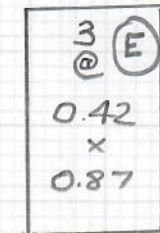 3 E
@
0.42
x
0.87